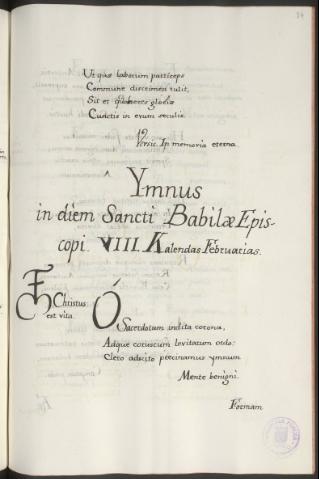 Ut quos laborum participes
Commune discrimen tulit,
Sit et gloriæ
Cunctis in ævum seculis.
Versic. In memoria eterna
Ymnus
in diem Sancti Babilæ Epis-
copi. VIII. Kalendas Februarias.
Christus
est vita.
O
Sacerdotum inclita corona,
Adque coruscum levitarum ordo:
Clero adscito precinamus ymnum
Mente benigni.
Formam